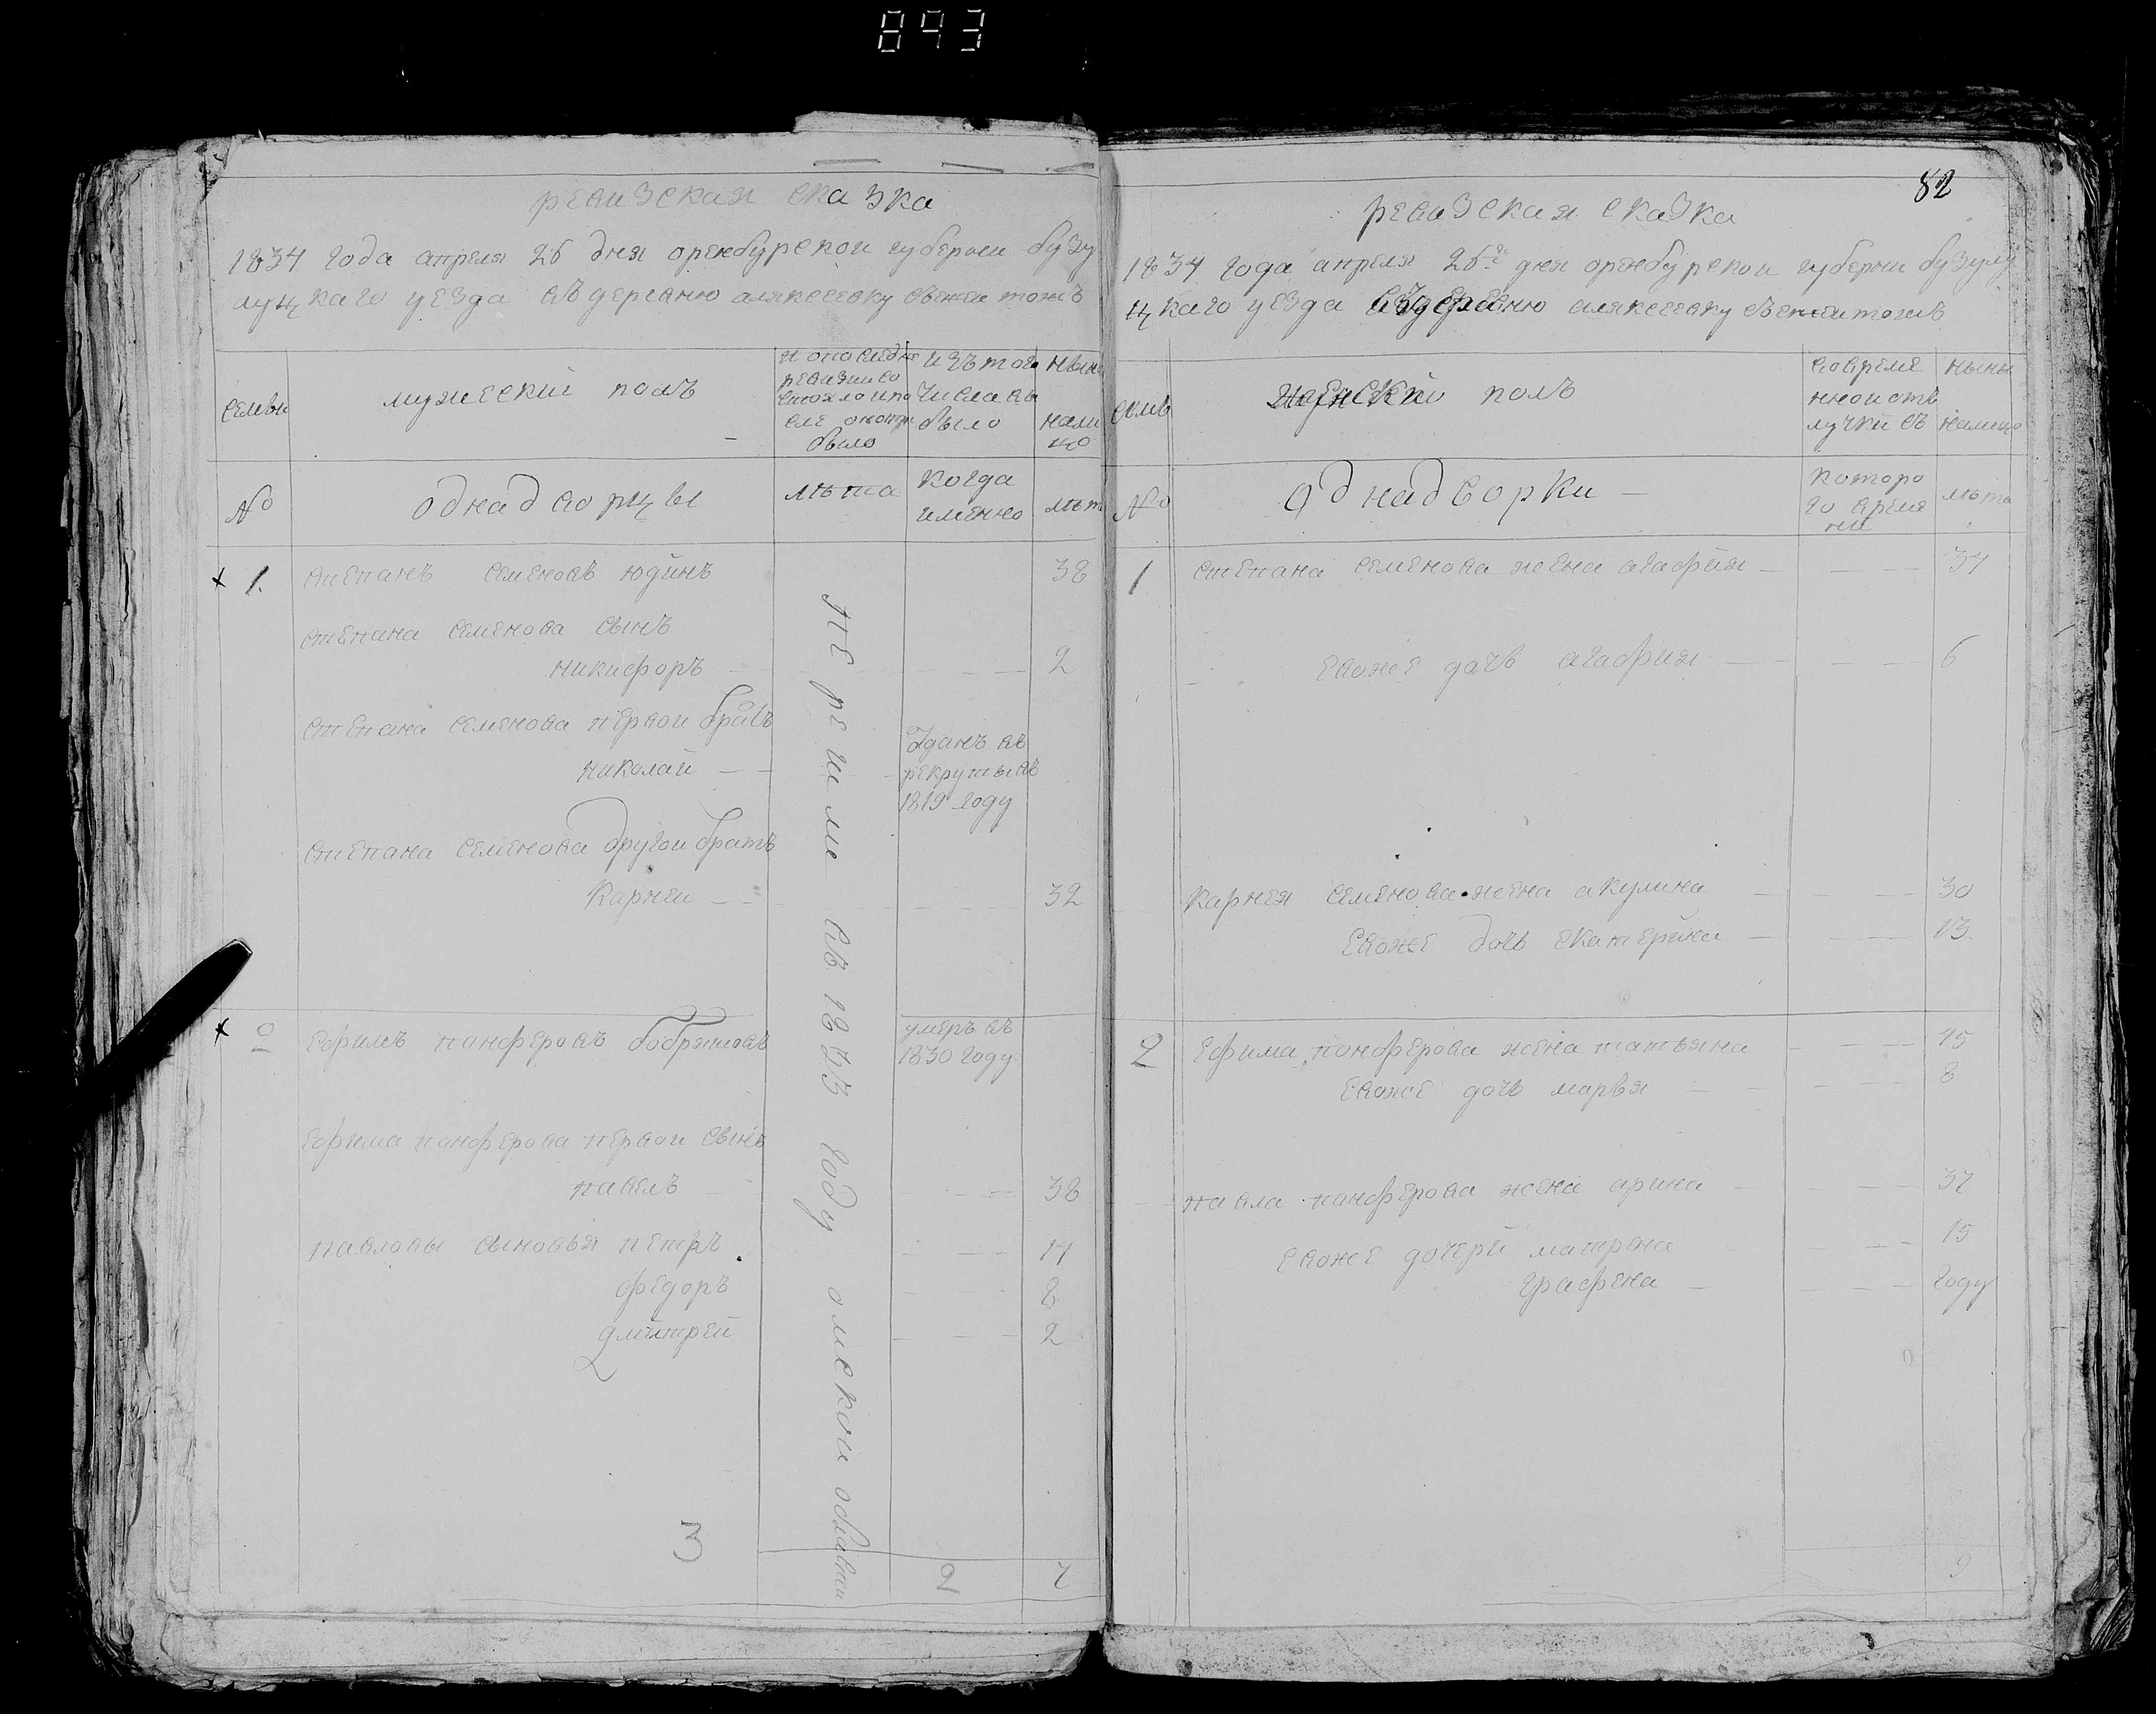 893
ревизская сказка
1834 года апреля 26 дня оренбурской губернии бузу
луцкаго уезда въ деревню аляксеевку
семьи
мужескій полъ
изъ того
числа вы
было
ныне
нали
цо
№
однадворцы
лета
когда
именно
лет
1. степанъ семеновъ юдинъ 38
степана семенова сынъ
никифоръ 2
степана семенова первой братъ
николай
зданъ въ
рекруты въ
1819 году
степана семенова другой братъ
карней 32
перешли въ 1833 году омской области
2 ефимъ панферовъ бобриковъ
умеръ въ
1830 году
ефима панферова первой сынъ
павелъ 38
павловы сыновья петръ 14
федоръ 8
дмитрей 2
3
2 7
82
ревизская сказка
1834 года апреля 26 дня оренбурской губернии бузулу
цкаго уезда въ деревню аляксеевку
семьи
женской полъ
во време
нной отъ
лучки съ
ныны
налицо
№
однадворки
которо
го время
ни
лета
1 степана семенова жена агафия 34
евоже дочь агафия 6
карнея семенова жена акулина 30
евоже дочь екатерина 13
2 ефима панферова жена татьяна 45
евоже дочь марья 8
павла панферова жена арина 37
евоже дочери матрена 15
графена году
9